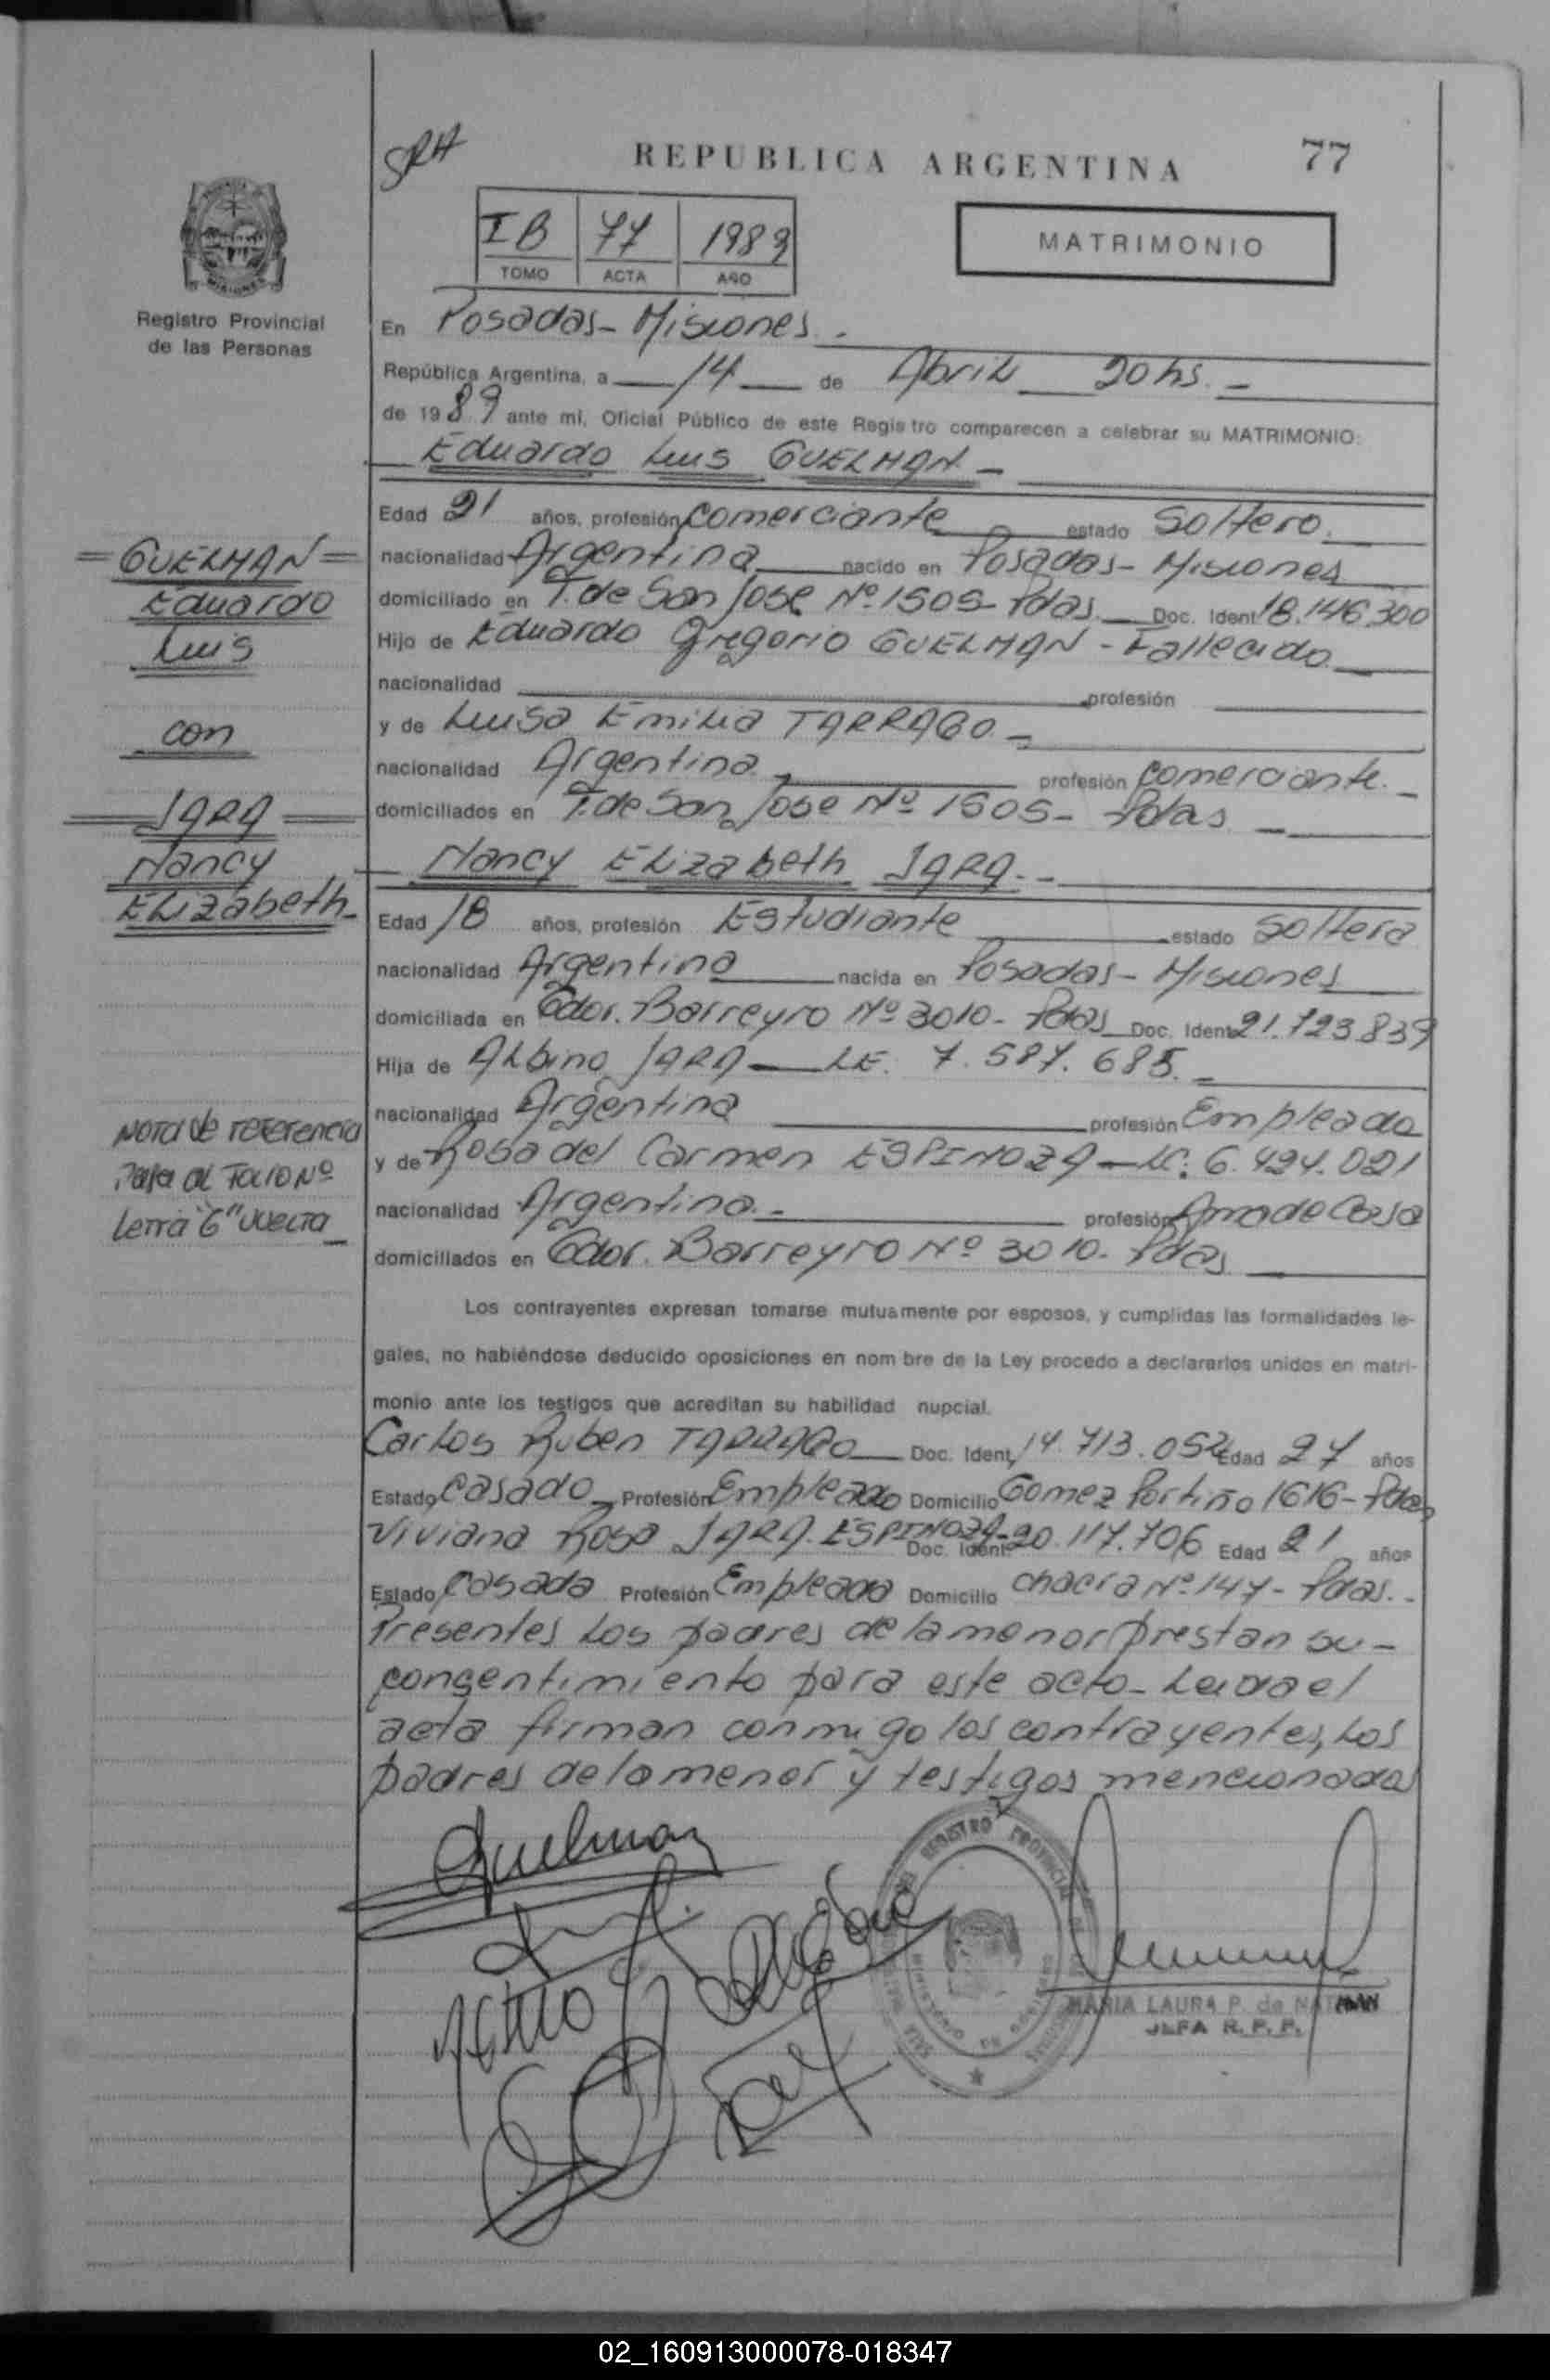 SRH
REPUBLICA ARGENTINA
77
IB 77 1989
TOMO ACTA AÑO
MATRIMONIO
Registro Provincial
de las Personas
En Posadas - Misiones.
República Argentina, a 14 de Abril 20 hs. -
de 1989 ante mi, Oficial Público de este Registro comparecen a celebrar su MATRIMONIO:
Eduardo Luis GUELMAN -
Edad 21 años, profesión comerciante estado Soltero.
nacionalidad Argentina nacido en Posadas - Misiones
domiciliado en T. de San Jose Nº 1505 - Pdas. Doc. Ident 18.146.300
Hijo de Eduardo Gregorio GUELMAN - Fallecido
nacionalidad profesión
y de Luisa Emilia TARRAGO. -
nacionalidad Argentina. profesión comerciante. -
domiciliados en T. de San Jose Nº 1505 - Pdas
Nancy Elizabeth JARA. -
Edad 18 años, profesión Estudiante estado Soltera
nacionalidad Argentina nacida en Posadas - Misiones
domiciliada en Gdor. Barreyro Nº 3010 - Pdas Doc. Ident 21.723.839
Hija de Albino JARA - LE. 7.587.685. -
nacionalidad Argentina profesión Empleado
y de Rosa del Carmen ESPINOZA - LC: 6.424.021
nacionalidad Argentina. - profesión Ama de Casa
domiciliados en Gdor. Barreyro Nº 3010 - Pdas
Los contrayentes expresan tomarse mutuamente por esposos, y cumplidas las formalidades le-
gales, no habiéndose deducido oposiciones en nom bre de la Ley procedo a declararlos unidos en matri-
monio ante los testigos que acreditan su habilidad nupcial.
Carlos Ruben TARRAGO Doc. Ident, 14.713.052 Edad 27 años
Estado Casado - Profesión Empleado Domicilio Gomez Portiño 1616 - Pdas
Viviana Rosa JARA. ESPINOZA - Doc. Ident: 20.117.706 Edad 21 años
Estado Casada Profesión Empleada Domicilio chacra Nº 147 - Pdas. -
Presentes los padres de la menor prestan su -
consentimiento para este acto - Leida el
acta firman conmigo los contrayentes, los
padres de la menor y testigos mencionados
= GUELMAN =
Eduardo
Luis
con
= JARA =
Nancy
Elizabeth -
Nota de referencia
Pasa al Folio Nº
Letra "G" vuelta -
Guelman
REGISTRO PROVINCIAL DE LAS PERSONAS
MINISTERIO DE GOBIERNO
MARIA LAURA P. de NATHAN
JEFA R. P. P.
02_160913000078-018347